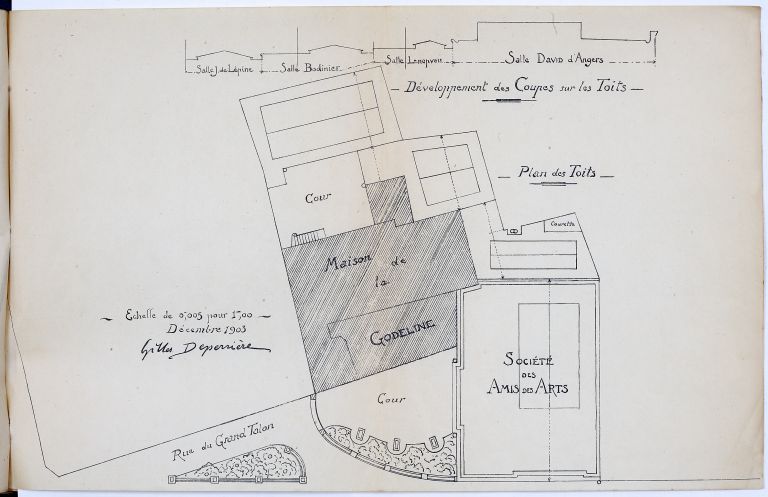 Salle J. de Lépine
Salle Bodinier
Salle Lenepveu
Salle David d'Angers
— Développement des Coupes sur les Toits —
— Plan des Toits —
Courette
Cour
Maison de
la
Godeline
~ Echelle de 0,005 pour 1,00 ~
Décembre 1903
Gilles Deperrière
Société
des
Amis des Arts
Cour
Rue du Grand Talon